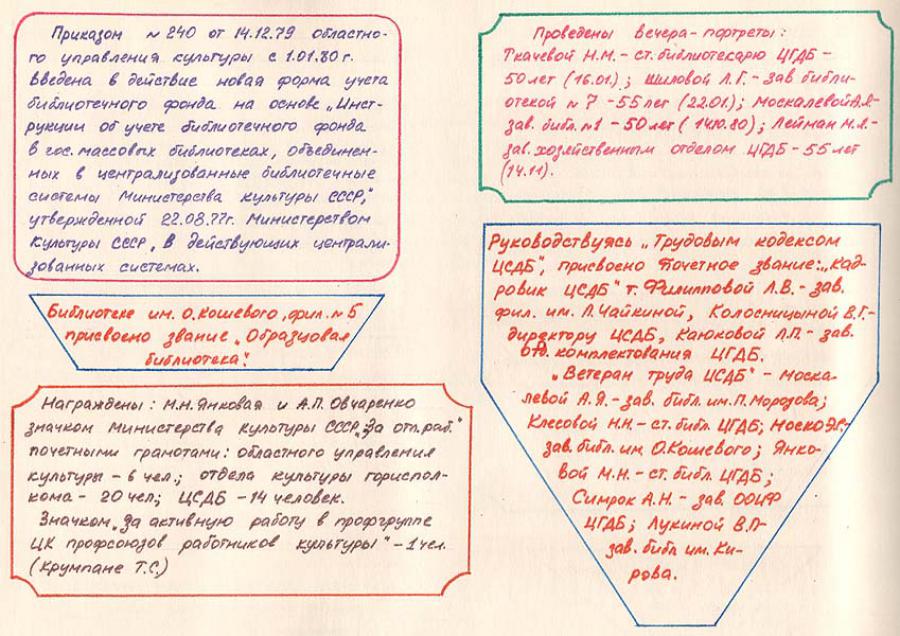 Приказом № 240 от 14.12.79 областно-
го управления культуры с 1.01.80 г.
введена в действие новая форма учета
библиотечного фонда на основе „Инст-
рукции об учете библиотечного фонда
в гос. массовых библиотеках, объединен-
ных в централизованные библиотечные
системы Министерства культуры СССР,"
утвержденной 22.08.77г. Министерством
культуры СССР, в действующих централи-
зованных системах.
Библиотеке им. О.Кошевого, фил. № 5
присвоено звание „Образцовая
библиотека".
Награждены: М.Н.Янковая и А.П. Овчаренко
значком Министерства культуры СССР „За отл. раб."
почетными грамотами: областного управления
культуры – 6 чел.; отдела культуры гориспол-
кома – 20 чел; ЦСДБ – 14 человек.
Значком „За активную работу в профгруппе
ЦК профсоюзов работников культуры" – 1 чел.
(Крумпане Т.С.)
Проведены вечера-портреты:
Ткачевой Н.М. – ст. библиотекарю ЦГДБ –
50 лет (16.01.); Шиловой Л.Г. – зав библи-
отекой № 7 – 55 лет (22.01.); Москалевой А.Я. –
зав. библ. № 1 – 50 лет (14.10.80); Лейман М.Л. –
зав. хозяйственным отделом ЦГДБ – 55 лет
(14.11).
Руководствуясь „Трудовым кодексом
ЦСДБ", присвоено Почетное звание: „Кад-
ровик ЦСДБ" т. Филипповой Л.В. – зав.
фил. им. Л.Чайкиной, Колосницыной В.Г. –
директору ЦСДБ, Каюковой Л.П. – зав.
отд. комплектования ЦГДБ.
„Ветеран труда ЦСДБ" – Моска-
левой А.Я. – зав. библ. им. П. Морозова;
Клесовой Н.Н. – ст. библ ЦГДБ; Моско
зав. библ. им. О.Кошевого; Янко-
вой М.Н. – ст. библ. ЦГДБ;
Симрок А.Н. – зав. ООИФ
ЦГДБ; Лукиной В.П –
зав. библ им. Ки-
рова.